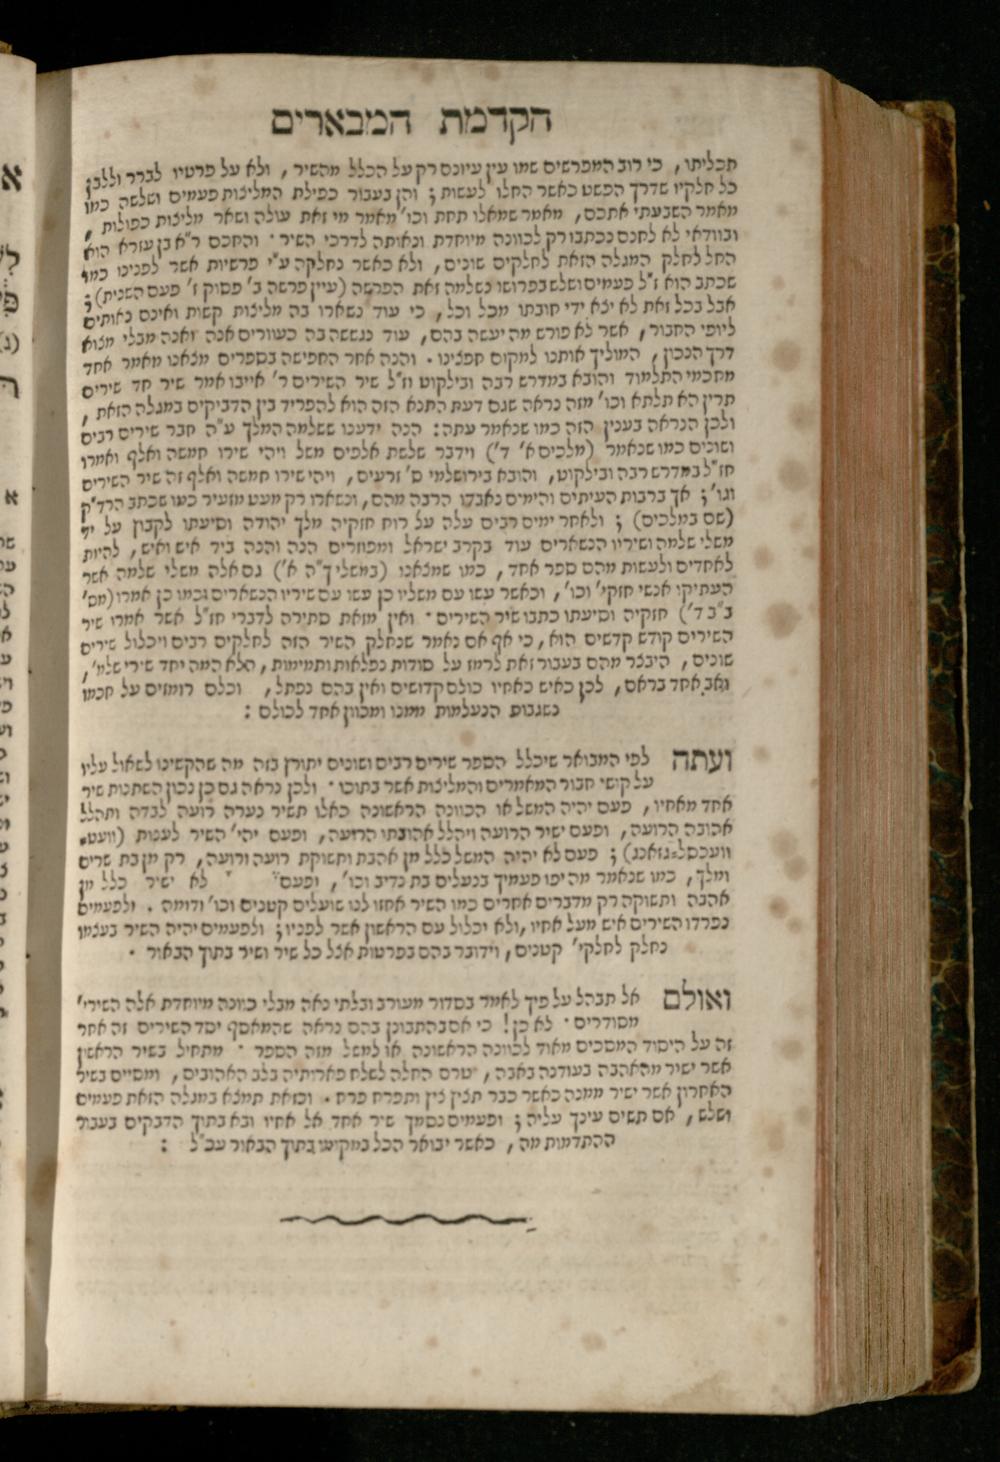 הקדמת המבארים
תכליתו, כי רוב המפרשים שמו עין עיונם רק על הכלל מהשיר, ולא על פרטיו לברר וללבן
כל חלקיו שדרך הפשט כאשר החלו לעשות; והן בעבור כפילת המליצות פעמים ושלשה כמו
מאמר השבעתי אתכם, מאמר שמאלו תחת וכו' מאמר מי זאת עולה ושאר מליצות כפולות,
ובוודאי לא לחנם נכתבו רק לכוונה מיוחדת ונאותה לדרכי השיר· והחכם ר"א בן עזרא הוא
החל לחלק המגלה הזאת לחלקים שונים, ולא כאשר נחלקה ע"י פרשיות אשר לפנינו כמו
שכתב הוא ז"ל פעמים ושלש בפרושו נשלמה זאת הפרשה (עיין פרשה ב' פסוק ז' פעם השנית);
אבל בכל זאת לא יצא ידי חובתו מכל וכל, כי עוד נשארו בה מליצות קשות ואינם נאותים
ליופי החבור, אשר לא פורש מה יעשה בהם, עוד נגששה בה כעורים אנה ואנה מבלי מצוא
דרך הנכון, המוליך אותנו למקום חפצינו. והנה אחר החפישה בספרים מצאנו מאמר אחד
מחכמי התלמוד והובא במדרש רבה ובילקוט וז"ל שיר השירים ר' אייבו אמר שיר חד שירים
תרין הא תלתא וכו' מזה נראה שגם דעת התנא הזה הוא להפריד בין הדביקים במגלה הזאת,
ולכן הנראה בענין הזה כמו שנאמר עתה: הנה ידענו ששלמה המלך ע"ה חבר שירים רבים
ושונים כמו שנאמר (מלכים א' ד') וידבר שלשת אלפים משל ויהי שירו חמשה ואלף ואמרו
חז"ל במדרש רבה ובילקוט, והובא בירושלמי ס' זרעים, ויהי שירו חמשה ואלף זה שיר השירים
וגו'; אך ברבות העיתים והימים נאבדו הרבה מהם, ונשארו רק מעט מזעיר כמו שכתב הרד"ק
(שם במלכים); ולאחר ימים רבים עלה על רוח חזקיה מלך יהודה וסיעתו לקבון על יד
משלי שלמה ושיריו הנשארים עוד בקרב ישראל ומפוזרים הנה והנה ביד איש ואיש, להיות
לאחדים ולעשות מהם ספר אחד, כמו שמצאנו (במשלי ך"ה א') גם אלה משלי שלמה אשר
העתיקו אנשי חזקי' וכו', וכאשר עשו עם משליו כן עשו עם שיריו הנשארים וכמו כן אמרו (מס'
ב"ב ד') חזקיה וסיעתו כתבו שיר השירים· ואין מזאת סתירה לדברי חז"ל אשר אמרו שיר
השירים קודש קדשים הוא, כי אף אם נאמר שנחלק השיר הזה לחלקים רבים ויכלול שירים
שונים, היבצר מהם בעבור זאת לרמז על סודות נפלאות ותמימות, הלא המה יחד שירי שלמ',
ואב אחד בראם, לכן כאיש כאחיו כולם קדושים ואין בהם נפתל, וכלם רומזים על חכמו
נשגבות הנעלמות ממנו ומכוון אחד לכולם:
ועתה לפי המבואר שיכלל הספר שירים רבים ושונים יתורץ בזה מה שהקשינו לשאול עליו
על קושי חבור המאמרים והמליצות אשר בתוכו· ולכן נראה גם כן נכון השתנות שיר
אחד מאחיו, פעם יהיה המשל או הכוונה הראשונה כאלו תשיר נערה רועה לבדה ותהלל
אהובה הרועה, ופעם ישיר הרועה ויהלל אהובתו הרועה, ופעם יהי' השיר לענות (וועט-
וועכסל-גזאנג); פעם לא יהיה המשל כלל מן אהבת ותשוקת רועה ורועה, רק מן בת שרים
ומלך, כמו שנאמר מה יפו פעמיך בנעלים בת נדיב וכו', ופעם לא ישיר כלל מן
אהבה ותשוקה רק מדברים אחרים כמו השיר אחזו לנו שועלים קטנים וכו' ודומה. ולפעמים
נפרדו השירים איש מעל אחיו, ולא יכלול עם הראשון אשר לפניו; ולפעמים יהיה השיר בעצמו
נחלק לחלקי' קטנים, וידובר בהם בפרטות אצל כל שיר ושיר בתוך הבאור·
ואולם אל תבהל על פיך לאמד בסדור מעורב ובלתי נאה מבלי כוונה מיוחדת אלה השירי'
מסודרים· לא כן! כי אם בהתבונן בהם נראה שהמאסף יסד השירים זה אחר
זה על היסוד המסכים מאוד לכוונה הראשונה או למשל מזה הספר· מתחיל בשיר הראשון
אשר ישיר מהאהבה בעודנה באבה, טרם החלה לשלח פארותיה בלב האהובים, ומסיים בשיר
האחרון אשר ישיר ממנה כאשר כבר תציץ ציץ ותפרח פרח. וכזאת תמצא במגלה הזאת פעמים
ושלש, אם תשים עינך עליה; ופעמים נסמך שיר אחד אל אחיו ובא בתוך הדבקים בעבור
ההתדמות מה, כאשר יבואר הכל במקומו בתוך הבאור עכ"ל: